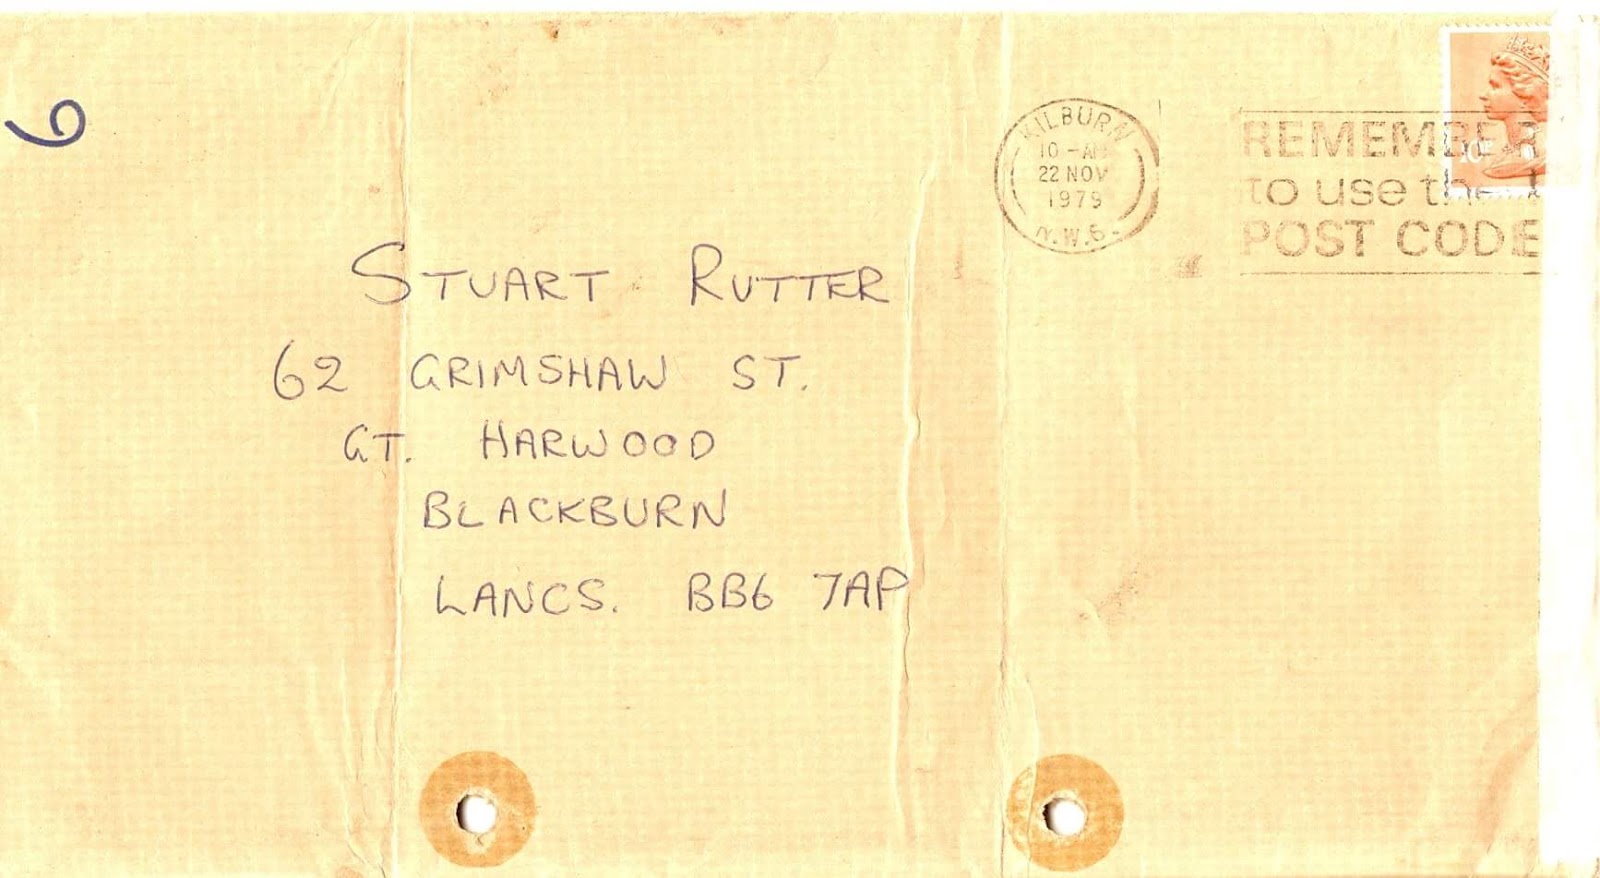 6
KILBURN
10 - AM
22 NOV
1979
N.W.6.
REMEMBER
to use the
POST CODE
10P
STUART RUTTER
62 GRIMSHAW ST.
GT. HARWOOD
BLACKBURN
LANCS. BB6 7AP